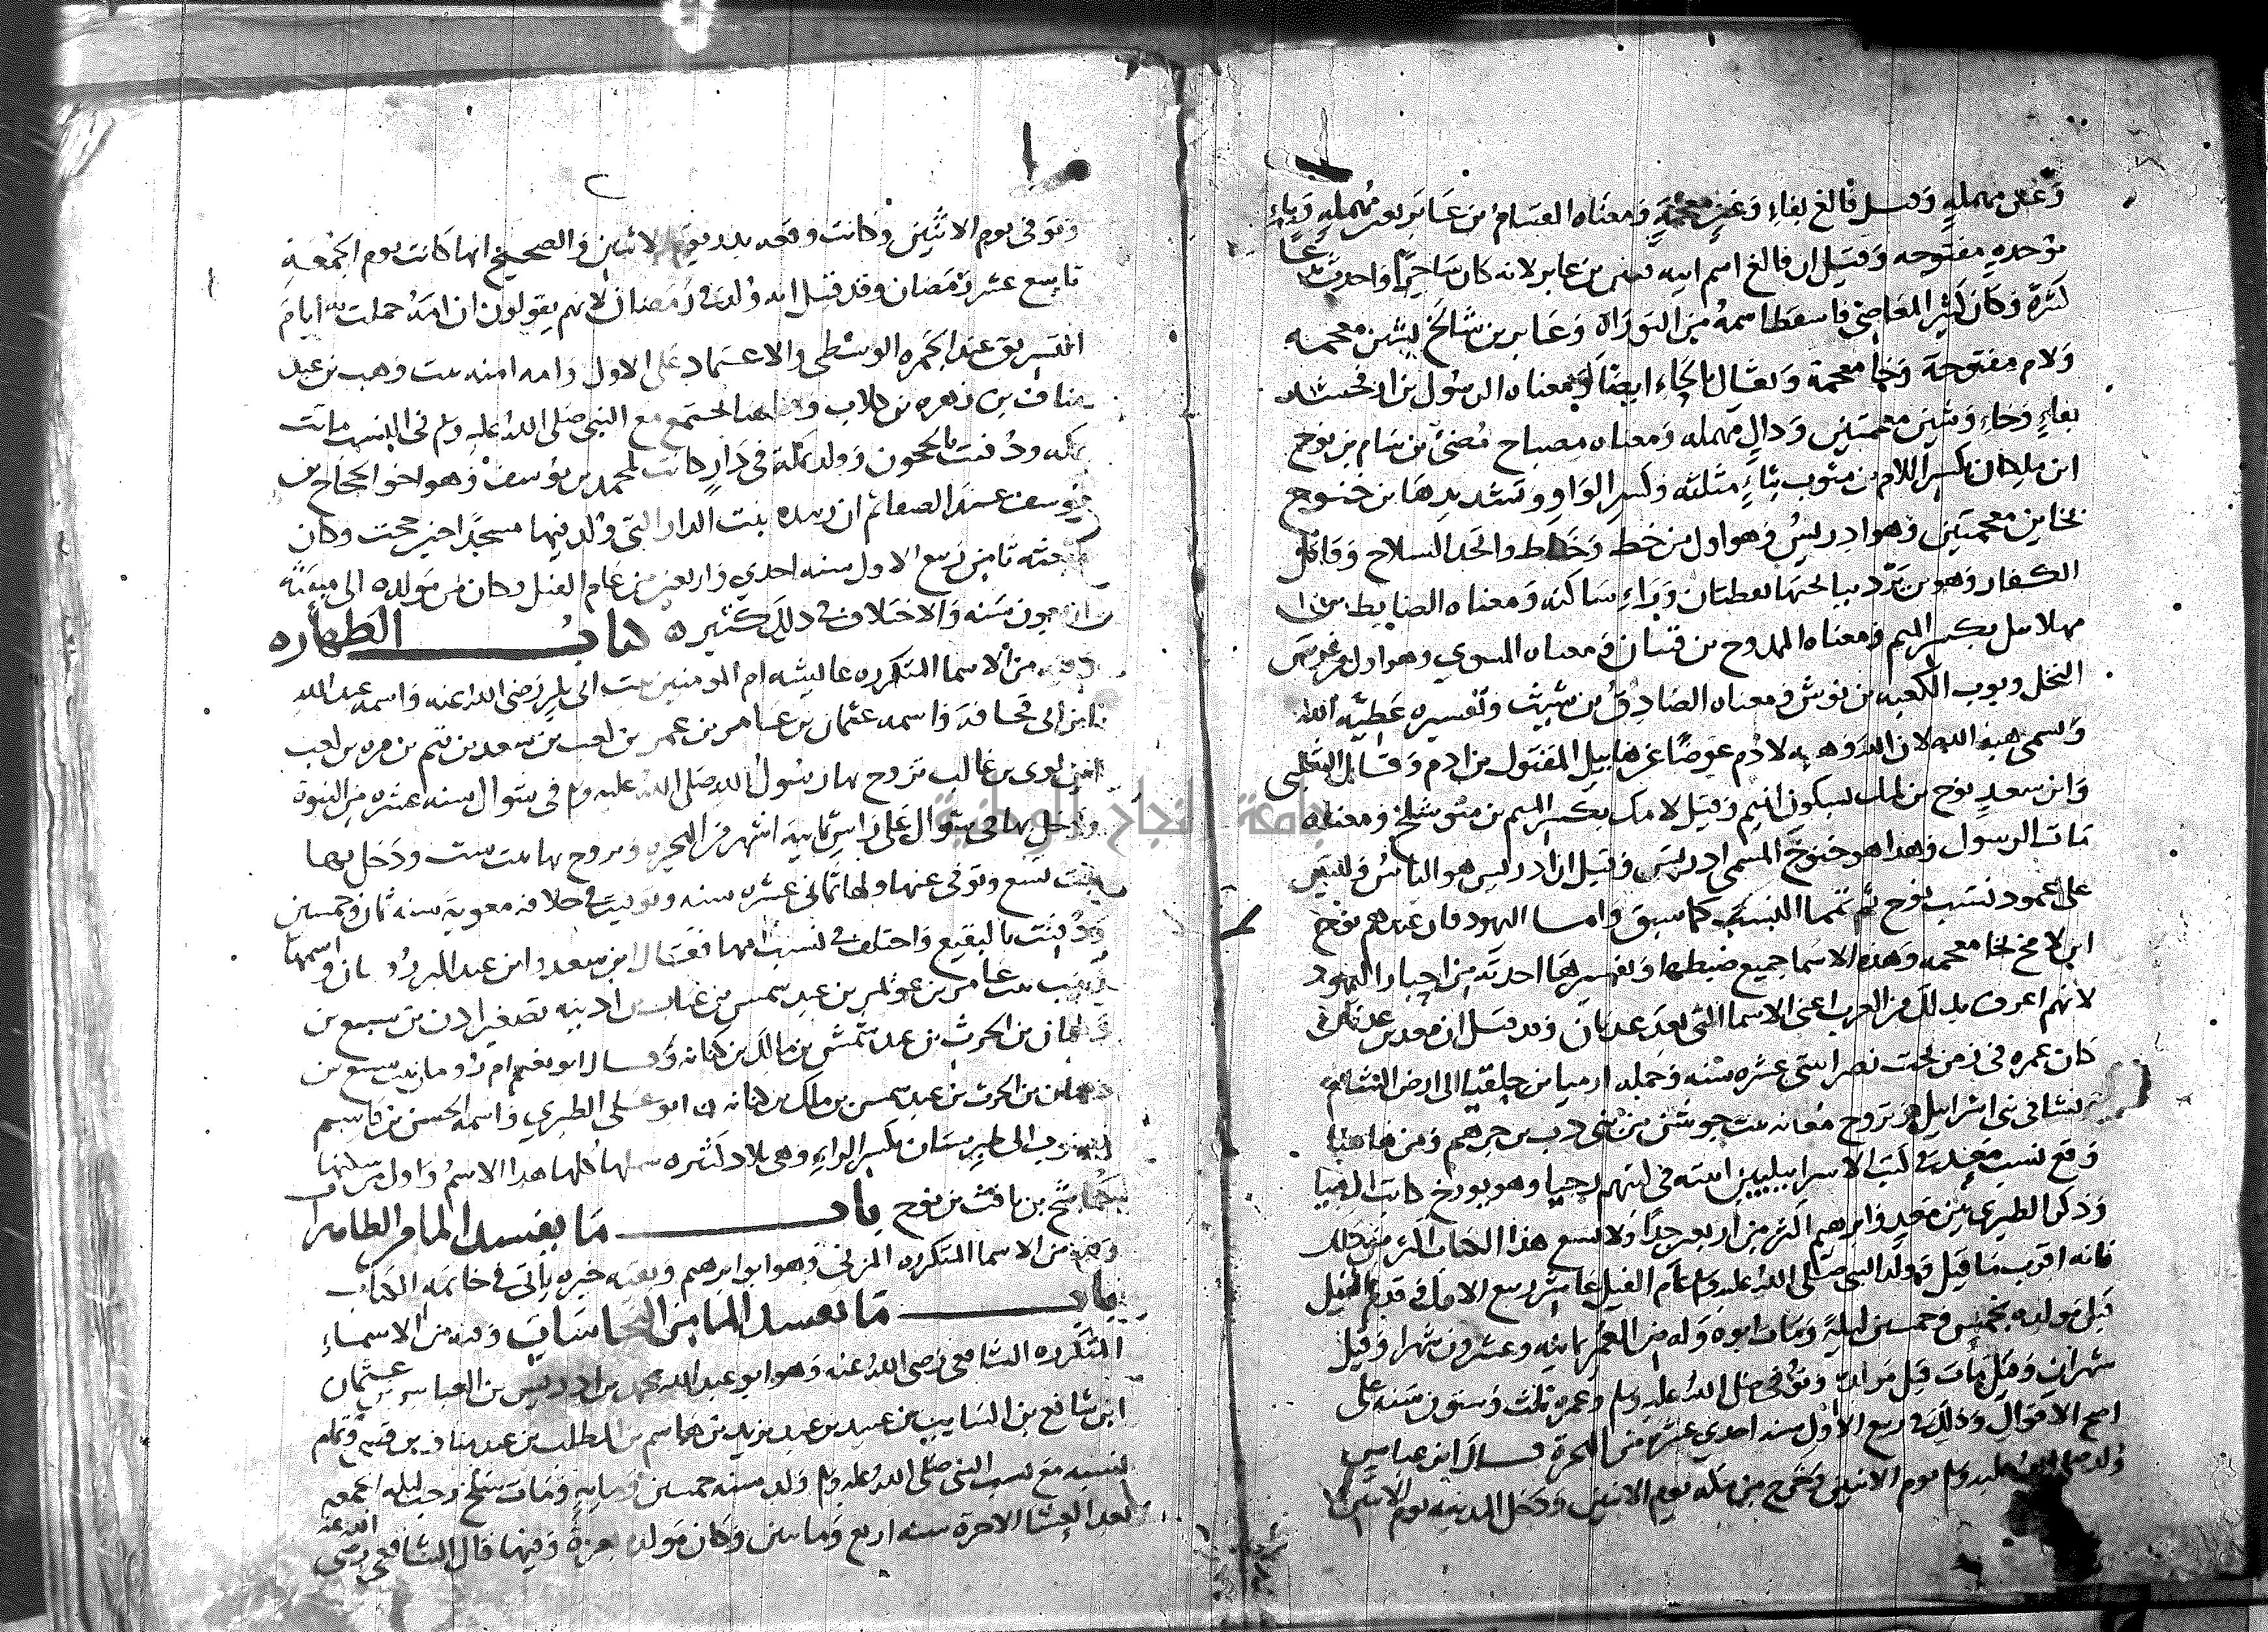 وعين مهملةٍ وقيل فالغ بفاءٍ وغينٍ معجمةٍ ومعناه القسام بن عابر بعين مهملةٍ وباءٍ
موحدةٍ مفتوحه وقيل ان فالغ اسم ابيه قينن بن عابر لانه كان ساحرًا واحدث
كثرة وكان كثير المعاصي فاسقط اسمه من التوراه وعابر بن شالخ بشين معجمه
ولام مفتوحة وخا معجمة ويقال بالحاء ايضًا ومعناه الرسول بن ارفخشد
بفاءٍ وخاءٍ وشين معجمتين ودالٍ مهمله ومعناه مصباح مضئ بن سام بن نوح
ابن ملكان بكسر اللام بن مثوب بثاءٍ مثلثه وكسر الواو وتشديدها بن خنوخ
بخاين معجمتين وهو ادريس وهو اول من خط وخاط واتخذ السلاح وقاتل
الكفار وهو بن يرد بيا تحتها نقطتان وراءٍ ساكنه ومعناه الضابط بن
مهلاييل بكسر الميم ومعناه الممدوح بن قينان ومعناه المسوي وهو اول من غرس
النخل وبوب الكعبه بن نوش ومعناه الصادق بن شيث وتفسيره عطيه الله
ويسمى هبة الله لان الله وهبه لادم عوضًا عن هابيل المقتول بن ادم وقال الثعلبي
وابن سعدٍ نوح بن لمك بسكون الميم وقيل لامك بكسر الميم بن متوشلخ ومعناه
مات الرسول وهذا هو خنوخ المسمى ادريس وقيل ان ادريس هو الياس وليس
على عمود نسب نوح ثم تمما النسب كما سبق واما اليهود فان عندهم نوح
ابن لامخ بخا معجمه وهذه الاسما جميع ضبطها وتفسيرها اخذته من احبار اليهود
لانهم اعرف بذلك من العرب اعني الاسما التي بعد عدنان وقد قيل ان معد بن عدنان
كان عمره في زمن بخت نصر اثنتي عشره سنه وحمله ارميا بن حلقيا الى ارض الشام
فنشا في بني اسراييل وتزوج معانه بنت جوشن من بني دب بن جرهم ومن هاهنا
وقع نسب معد في كتب الاسراييليين اثبته في كتبهم رخيا وهو يورخ كاتب ارميا
وذكر الطبري بين معدٍ وابرهيم اكثر من اربعين جدًا ولا يسع هذا الكتاب اكثر من ذلك
فانه اقرب ما قيل وولد النبي صلى الله عليه وسلم عام الفيل عاشر ربيع الاول في قدوم الفيل
قبل مولده بخمس وخمسين ليلةً ومات ابوه وله من العمر ثمانيه وعشرون شهرا وقيل
شهران وقيل مات قبل مولده وتوفي صلى الله عليه وسلم وعمره ثلث وستون سنه على
اصح الاقوال وذلك في ربيع الاول سنه احدي عشرة من الهجرة قال ابن عباس
ولد صلى الله عليه وسلم يوم الاثنين وخرج من مكه يوم الاثنين ودخل المدينه يوم الاثنين
٢
وتوفي يوم الاثنين وكانت وقعه بدر يوم الاثنين والصحيح انها كانت يوم الجمعة
تاسع عشر رمضان وقد قيل انه ولد في رمضان لانهم يقولون ان امه حملت به ايام
التشريق عند الجمره الوسطى والاعتماد على الاول وامه امنه بنت وهب بن عبد
مناف بن زهره بن كلاب تجتمع مع النبي صلى الله عليه وسلم في النسب ماتت
بمكه ودفنت بالحجون وولد بمكة في دارٍ كانت لمحمد بن يوسف وهو اخو الحجاج بن
يوسف عند الصفا ثم ان زبيده بنت الدار التي ولد فيها مسجدًا حين حجت وكان
بعثه ثامن ربيع الاول سنه احدي واربعين من عام الفيل وكان من مولده الى مبعثه
اربعون سنه والاختلاف في ذلك كثيره كتاب الطهاره
وفيه من الاسما المتكرره عاليشه ام المومنين بنت ابي بكرٍ رضي الله عنه واسمه عبد الله
ابن ابي قحافة واسمه عثمان بن عامر بن عمرو بن كعب بن سعد بن تيم بن مره بن كعب
ابن لوي بن غالب تزوج بها رسول الله صلى الله عليه وسلم في شوال سنه عشره من النبوة
ودخل بها في شوال على راس ثمانيه اشهر من الهجره وتزوج بها بنت ست ودخل بها
بنت تسع وتوفي عنها ولها ثماني عشره سنه وتوفيت في خلافه معوية سنه ثمان وخمسين
ودفنت بالبقيع واختلف في نسب امها فقال ابن سعد وابن عبد البر رومان واسمها
زينب بنت عامر بن عويمر بن عبد شمس بن عتاب بن اذينه تصغير اذن بن سبيع بن
دهمان بن الحرث بن عبد شمس بن مالك بن كنانه وقال ابو نعيم ام رومان بنت سبيع بن
دهمان بن الحرث بن عبد شمس بن ملك بن كنانه ابو علي الطبري واسمه الحسن بن قاسم
منسوب الى طبرستان بكسر الراءِ وهي بلاد كثيره يشملها كلها هذا الاسم واول من سكنها
بن يافث بن نوح باب ما يفسد الما من الطاهرات
وفيه من الاسما المتكرره المزني وهو ابو ابرهيم وبقيه خبره ياتي في خاتمه الكتاب
باب ما يفسد الما من النجاسات وفيه من الاسماءِ
المتكرره الشافعي رضي الله عنه وهو ابو عبد الله محمد بن ادريس بن العباس بن عثمان
ابن شافع بن السايب بن عبيد بن عبد يزيد بن هاشم بن المطلب بن عبد مناف بن قصي وتمام
نسبه مع نسب النبي صلى الله عليه وسلم ولد سنه خمسين ومايه ومات سلخ رجب ليله الجمعه
بعد العشا الاخرة سنه اربع ومايتين وكان مولده بغزة وفيها قال الشافعي رضي الله عنه
جامعة النجاح الوطنية